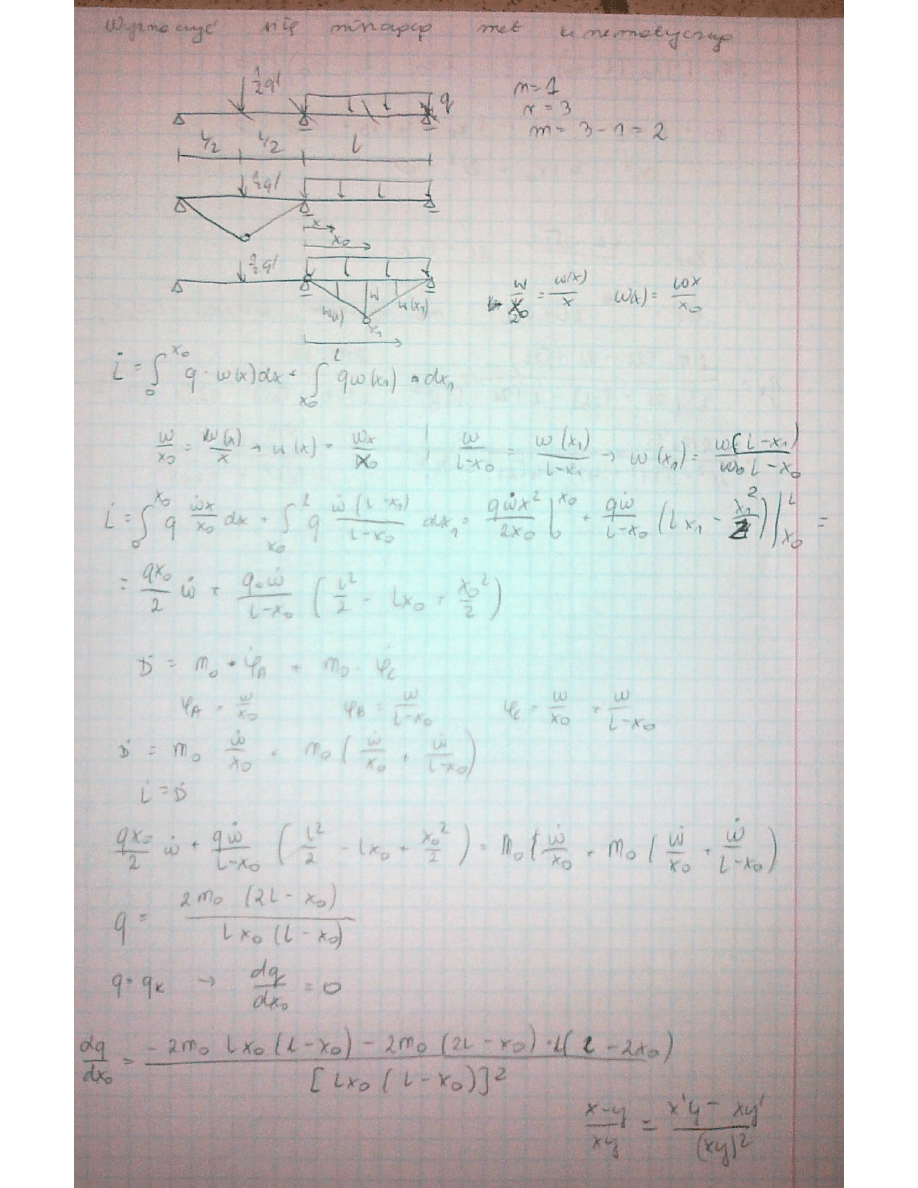 Wyznaczyć się niszczącą met kinematyczną
½ql
q
n=1
x=3
m= 3-1=2
L/2 L/2 l
½ql
x
x₀
½ql
w(x) w w(x₁)
x₁
w/x₀ = w(x)/x w(x)= wx/x₀
L̇ = ∫₀^x₀ q · w(x)dx + ∫_x₀^l qw(x₁) dx₁
w/x₀ = w(x)/x → w(x) = wx/x₀ | w/(l-x₀) = w(x₁)/(l-x₁) → w(x₁) = w(l-x₁)/(l-x₀)
L̇ = ∫₀^x₀ q ẇx/x₀ dx + ∫_x₀^l q ẇ(l-x₁)/(l-x₀) dx₁ = qẇx²/2x₀ |₀^x₀ + qẇ/(l-x₀) (lx₁ - x₁²/2)|_x₀^l =
= qx₀/2 ẇ + q₀ẇ/(l-x₀) (l²/2 - lx₀ + x₀²/2)
Ḋ = m₀ · φ̇A + m₀ · φ̇C
φA = w/x₀ φB = w/(l-x₀) φC = w/x₀ + w/(l-x₀)
Ḋ = m₀ ẇ/x₀ + m₀ (ẇ/x₀ + ẇ/(l-x₀))
L̇ = Ḋ
qx₀/2 ẇ + qẇ/(l-x₀) (l²/2 - lx₀ + x₀²/2) = m₀ (ẇ/x₀ + m₀ (ẇ/x₀ + ẇ/(l-x₀))
q = 2m₀ (2l - x₀) / lx₀ (l - x₀)
q = qk → dq/dx₀ = 0
dq/dx₀ = -2m₀ lx₀ (l-x₀) - 2m₀ (2l - x₀) · l(l - 2x₀) / [lx₀ (l - x₀)]²
x-y/xy = x'y - xy'/(xy)²